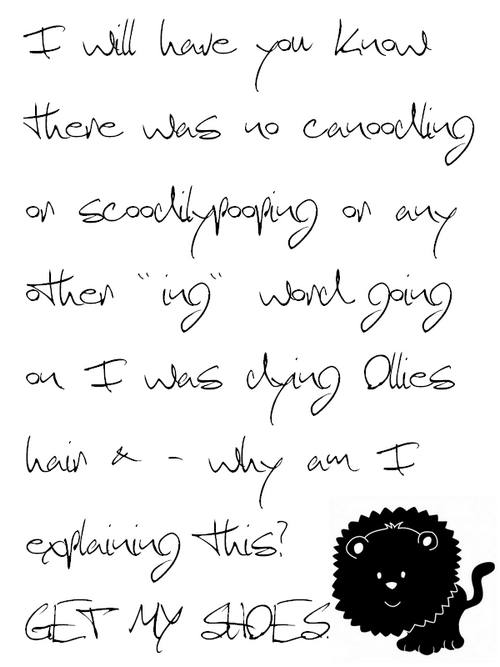 I will have you know
there was no canoodling
or scoodilypooping or any
other "ing" word going
on I was dying Ollies
hair & - why am I
explaining this?
GET MY SHOES.